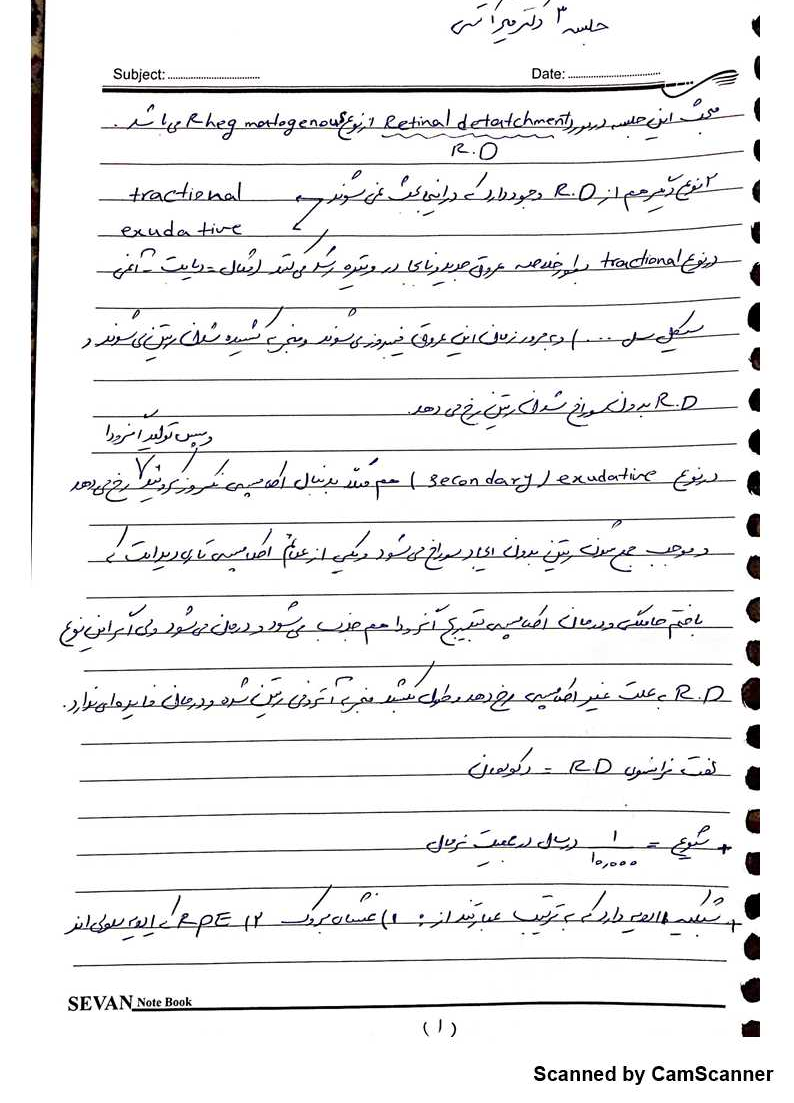 جلسه ۳ دکتر میرآتشی
Subject: Date:
مبحث این جلسه در مورد Retinal detatchment از نوع Rheg matogenous می باشد.
R.D
۲ نوع دیگر هم از R.D وجود دارد که در اینجا بحث نمی شوند
tractional
exudative
در نوع tractional بطور خلاصه عروق جدید و نابجا در ویتره رشد می کنند (مثال = دیابت - آنمی
سیکل سل ....) و به مرور زمان این عروق فیبروزی شوند و منجر به کشیده شدن رتین می شوند و
R.D بدون سوراخ شدن رتین رخ می دهد.
و سپس تولید اگزودا
در نوع exudative (secondary) هم مثلاً بدنبال اکلامپسی نکروز کروئید رخ می دهد
و موجب جمع شدن رتین بدون ایجاد سوراخ می شود و یکی از علائم اکلامپسی تاری دید است که
با ختم حاملگی و درمان اکلامپسی بتدریج اگزودا هم جذب می شود و درمان می شود ولی اگر این نوع
R.D به علت غیر اکلامپسی رخ دهد و طول بکشد منجر به آتروفی رتین شده و درمان فایده ای ندارد.
لغت فرانسوی RD = دکولمان
+ شیوع = ۱/۱۰,۰۰۰ در سال در جمعیت نرمال
+ شبکیه لایه دارد که به ترتیب عبارتند از: ۱) غشای بروک ۲) RPE که لایه سلولی اند
SEVAN Note Book
(۱)
Scanned by CamScanner